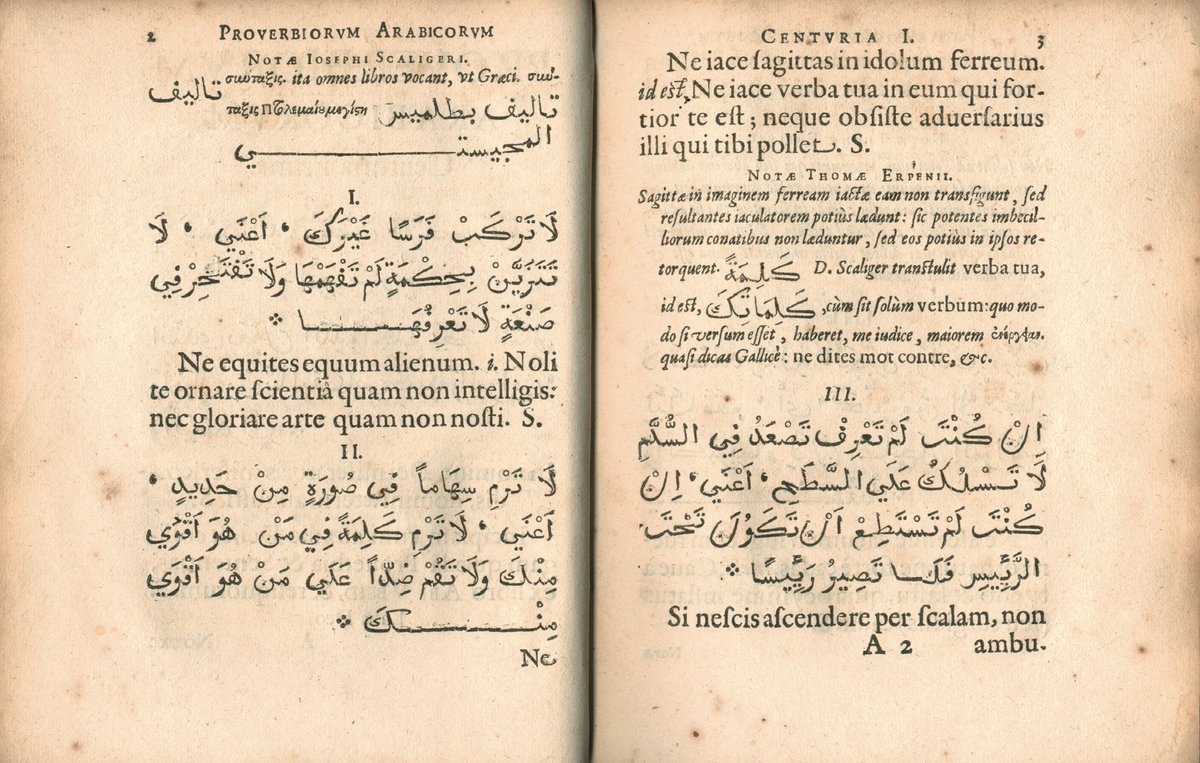 2 PROVERBIORVM ARABICORVM
NOTÆ IOSEPHI SCALIGERI.
تاليف σύνταξις. ita omnes libros vocant, vt Græci. σύν-
ταξις Πτολεμαίου μεγίστη تاليف بطلميس
المجيستي
I.
لَا تَرْكَبْ فَرَسًا غَيْرَكَ ، اَعْنِي ، لَا
تَتَزَيَّنْ بِحِكْمَةٍ لَمْ تَفْهَمْهَا وَلَا تَفْتَخِرْ فِي
صَنْعَةٍ لَا تَعْرِفُهَا
Ne equites equum alienum. i. Noli
te ornare ſcientiâ quam non intelligis:
nec gloriare arte quam non nosti. S.
II.
لَا تَرْمِ سِهَاماً فِي صُورَةٍ مِنْ حَدِيدٍ ،
اَعْنِي ، لَا تَرْمِ كَلِمَةً فِي مَنْ هُوَ اَقْوَي
مِنْكَ وَلَا تَقُمْ ضِدّاً عَلَي مَنْ هُوَ اَقْوَي
مِنْكَ
Ne
CENTVRIA I. 3
Ne iace ſagittas in idolum ferreum.
id est, Ne iace verba tua in eum qui for-
tior te est; neque obſiste aduerſarius
illi qui tibi pollet. S.
NOTÆ THOMÆ ERPENII.
Sagittæ in imaginem ferream iactæ eam non transfigunt, ſed
reſultantes iaculatorem potiùs lædunt: ſic potentes imbecil-
liorum conatibus non læduntur, ſed eos potiùs in ipſos re-
torquent. كَلِمَةً D. Scaliger tranſtulit verba tua,
id est, كَلِمَاتِكَ, cùm ſit ſolùm verbum: quo mo-
do ſi verſum eſſet, haberet, me iudice, maiorem ἐνέργειαν.
quaſi dicas Gallicè: ne dites mot contre, &c.
III.
اِنْ كُنْتَ لَمْ تَعْرِفْ تَصْعَدْ فِي السُّلَّمِ
لَا تَسْلُكْ عَلَي السَّطَحِ ، اَعْنِي ، اِنْ
كُنْتَ لَمْ تَسْتَطِعْ اَنْ تَكَوُنَ تَحْتَ
الرَّئِيسِ فَلَا تَصِيرُ رَئِيسًا
Si neſcis aſcendere per ſcalam, non
A 2 ambu.